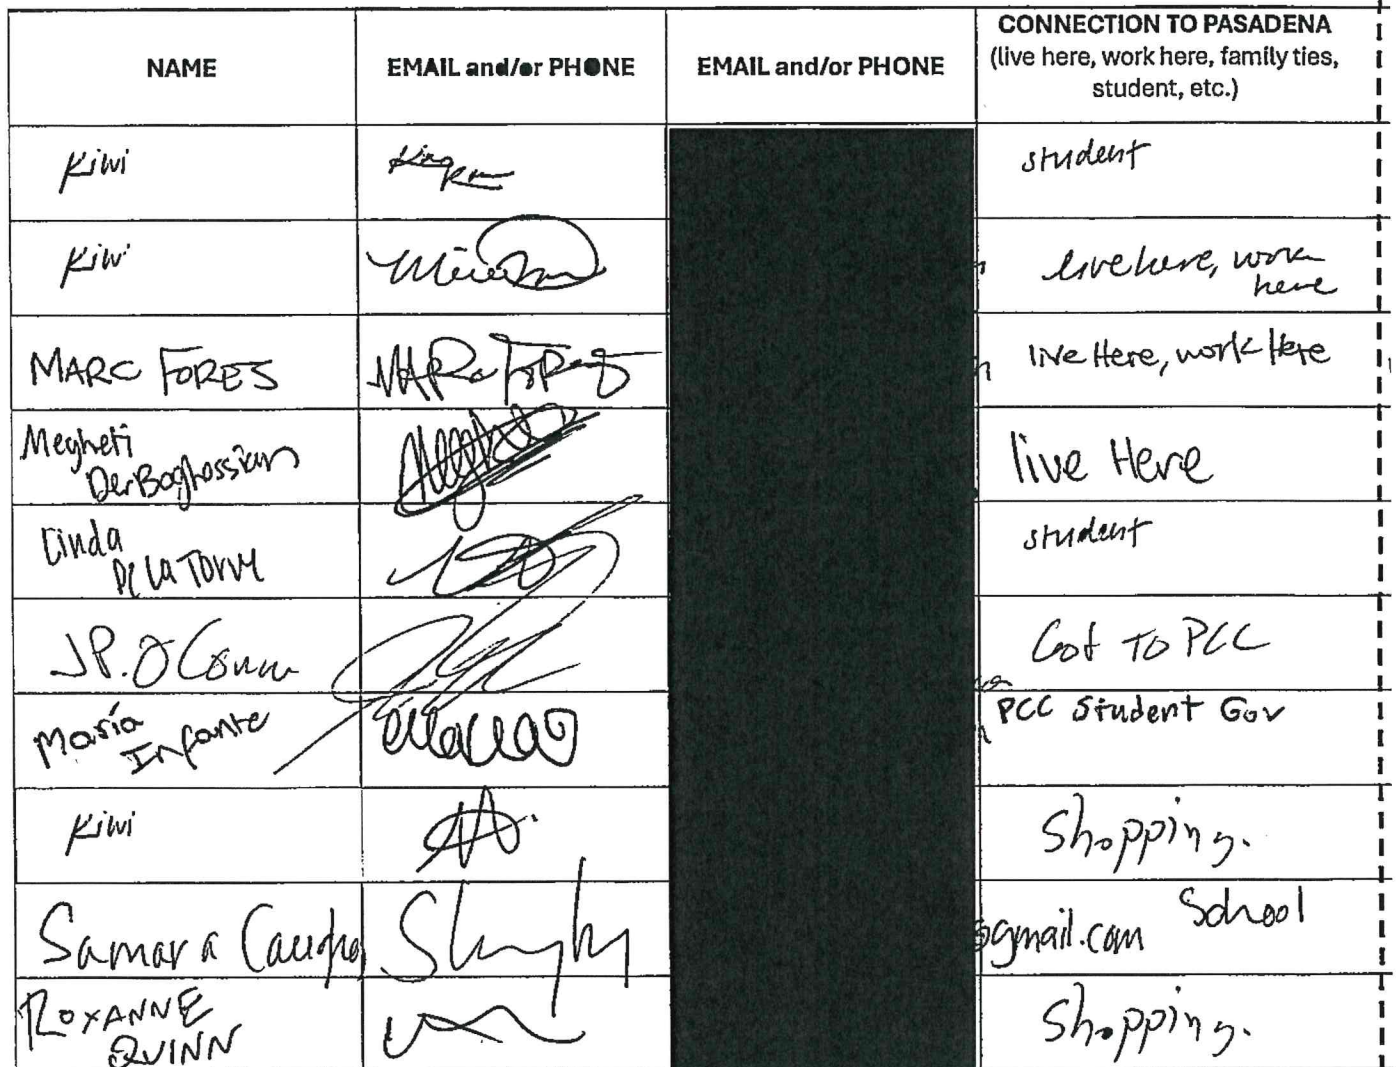 NAME
EMAIL and/or PHONE
EMAIL and/or PHONE
CONNECTION TO PASADENA
(live here, work here, family ties,
student, etc.)
Kiwi
student
Kiwi
live here, work
here
MARC FORES
MARC FORES
live Here, work Here
Megheti
DerBoghossian
live Here
Linda
De La Torre
student
JP. O'Conn
Got TO PCC
María
Infante
PCC Student Gov
Kiwi
Shopping.
Samara
@gmail.com
School
ROXANNE
QUINN
Shopping.